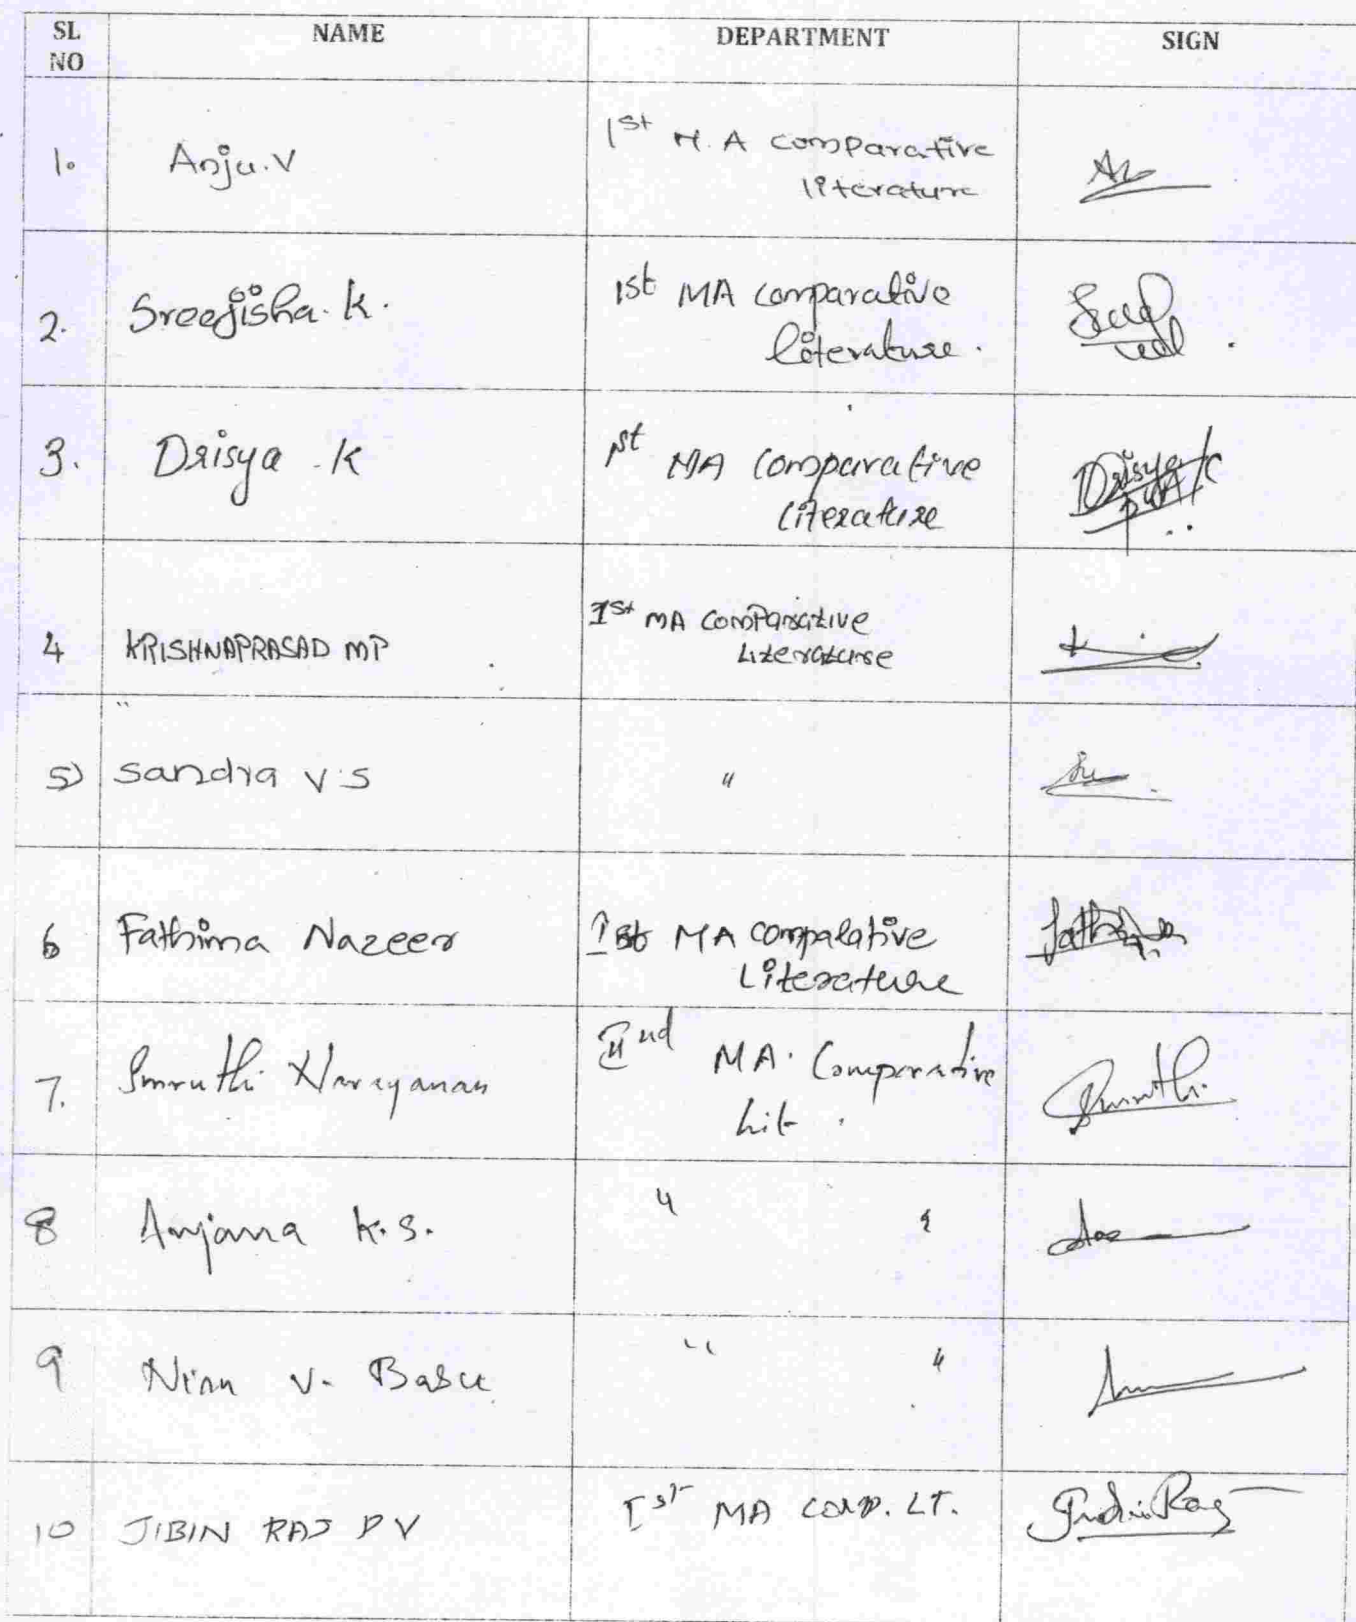 SL NO NAME DEPARTMENT SIGN
1. Anju.V 1st M.A comparative
literature
2. Sreejisha. K. 1st MA comparative
literature.
3. Drisya .K 1st MA comparative
literature Drisya K
4 KRISHNAPRASAD MP 1st MA comparative
literature
5) Sandra V.S "
6 Fathima Nazeer 1st MA compalative
Literature Fathima
7. Smruthi Narayanan IInd MA. Comparative
Lit. Smruthi
8 Anjana K.S. " "
9 V. Basu " "
10 JIBIN RAJ P V Ist MA COMP. LT.